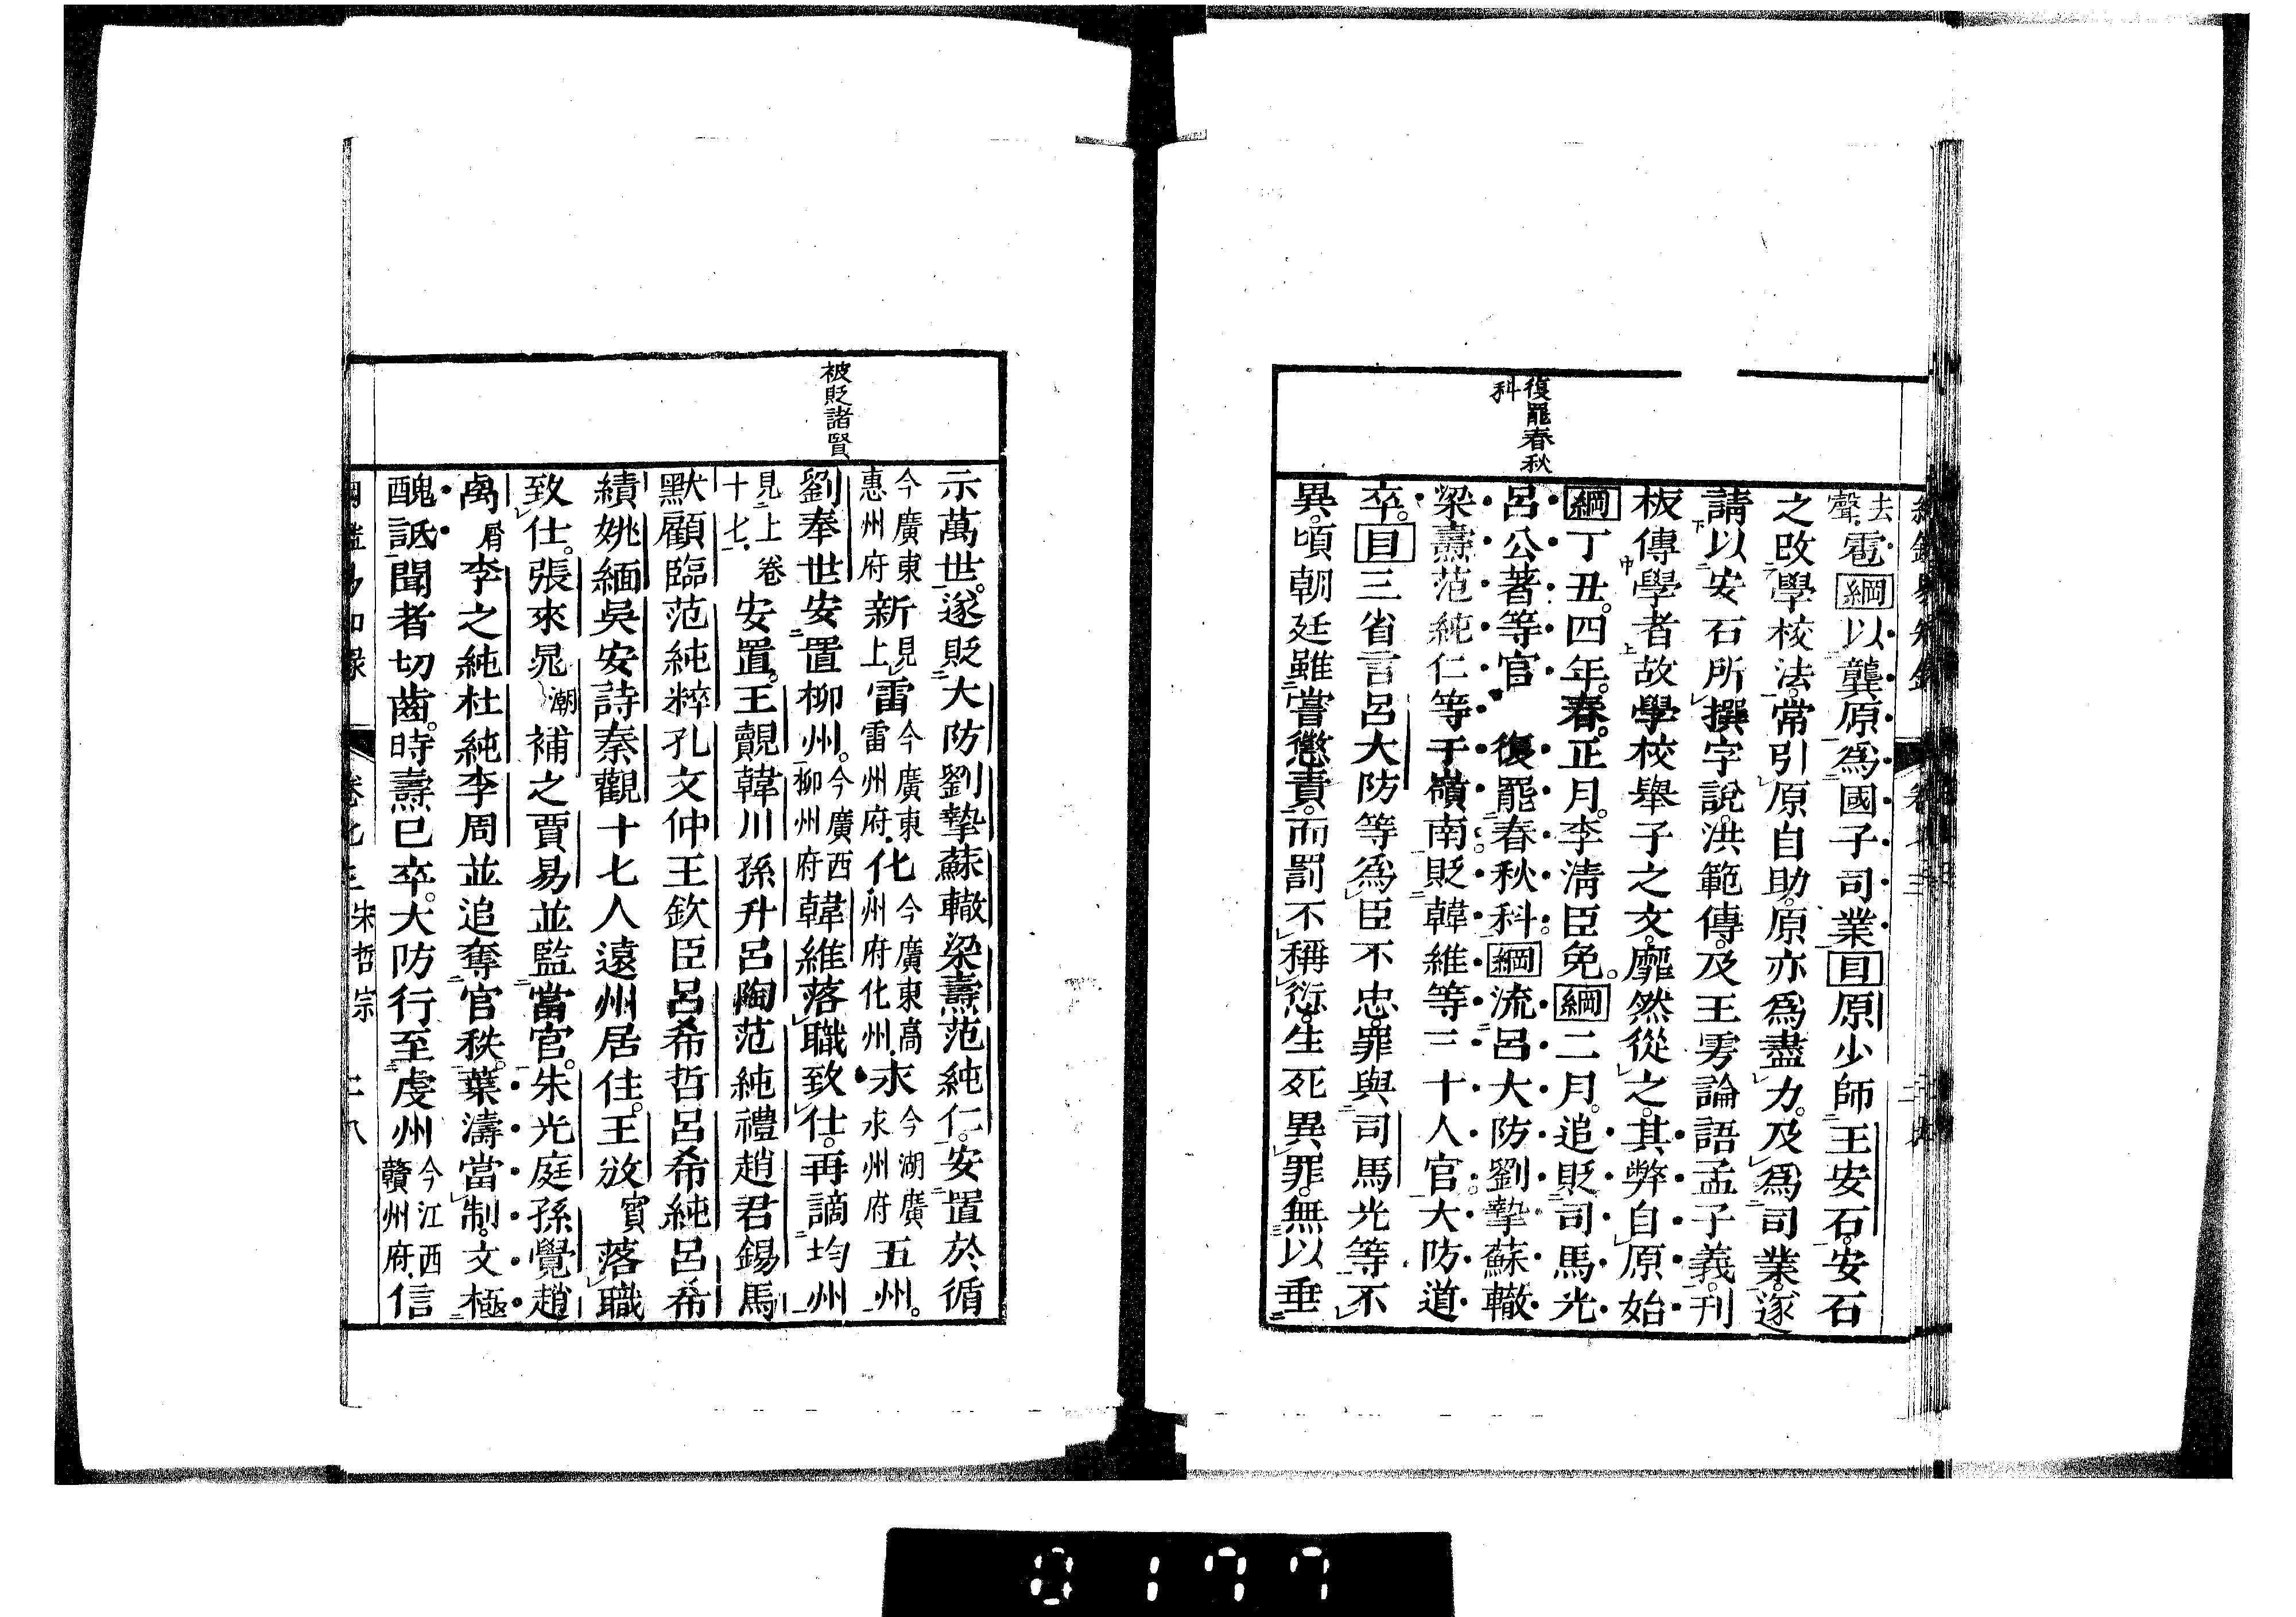 復罷春秋
科
去聲雹綱以龔原爲國子司業目原少師王安石安石
之改學校法常引原自助原亦爲盡力及爲司業遂
請以安石所撰字說洪範傳及王雱論語孟子義刊
板傳學者故學校舉子之文靡然從之其弊自原始
綱丁丑四年春正月李清臣免綱二月追貶司馬光
呂公著等官 復罷春秋科綱流呂大防劉摯蘇轍
梁燾范純仁等于嶺南貶韓維等三十人官大防道
卒目三省言呂大防等爲臣不忠罪與司馬光等不
異頃朝廷雖嘗懲責而罰不稱愆生死異罪無以垂
被貶諸賢
示萬世遂貶大防劉摯蘇轍梁燾范純仁安置於循
今廣東惠州府新見上雷今廣東雷州府化今廣東高州府化州永今湖廣永州府五州
劉奉世安置柳州今廣西柳州府韓維落職致仕再謫均州
見上卷十七安置王覿韓川孫升呂陶范純禮趙君錫馬
默顧臨范純粹孔文仲王欽臣呂希哲呂希純呂希
績姚緬吳安詩秦觀十七人遠州居住王攽賓落職
致仕張來晁潮補之賈易並監當官朱光庭孫覺趙
禼屑李之純杜純李周並追奪官秩葉濤當制文極
醜詆聞者切齒時燾已卒大防行至虔州今江西贛州府信
綱鑑易知錄 卷七三 宋哲宗 二八
0177